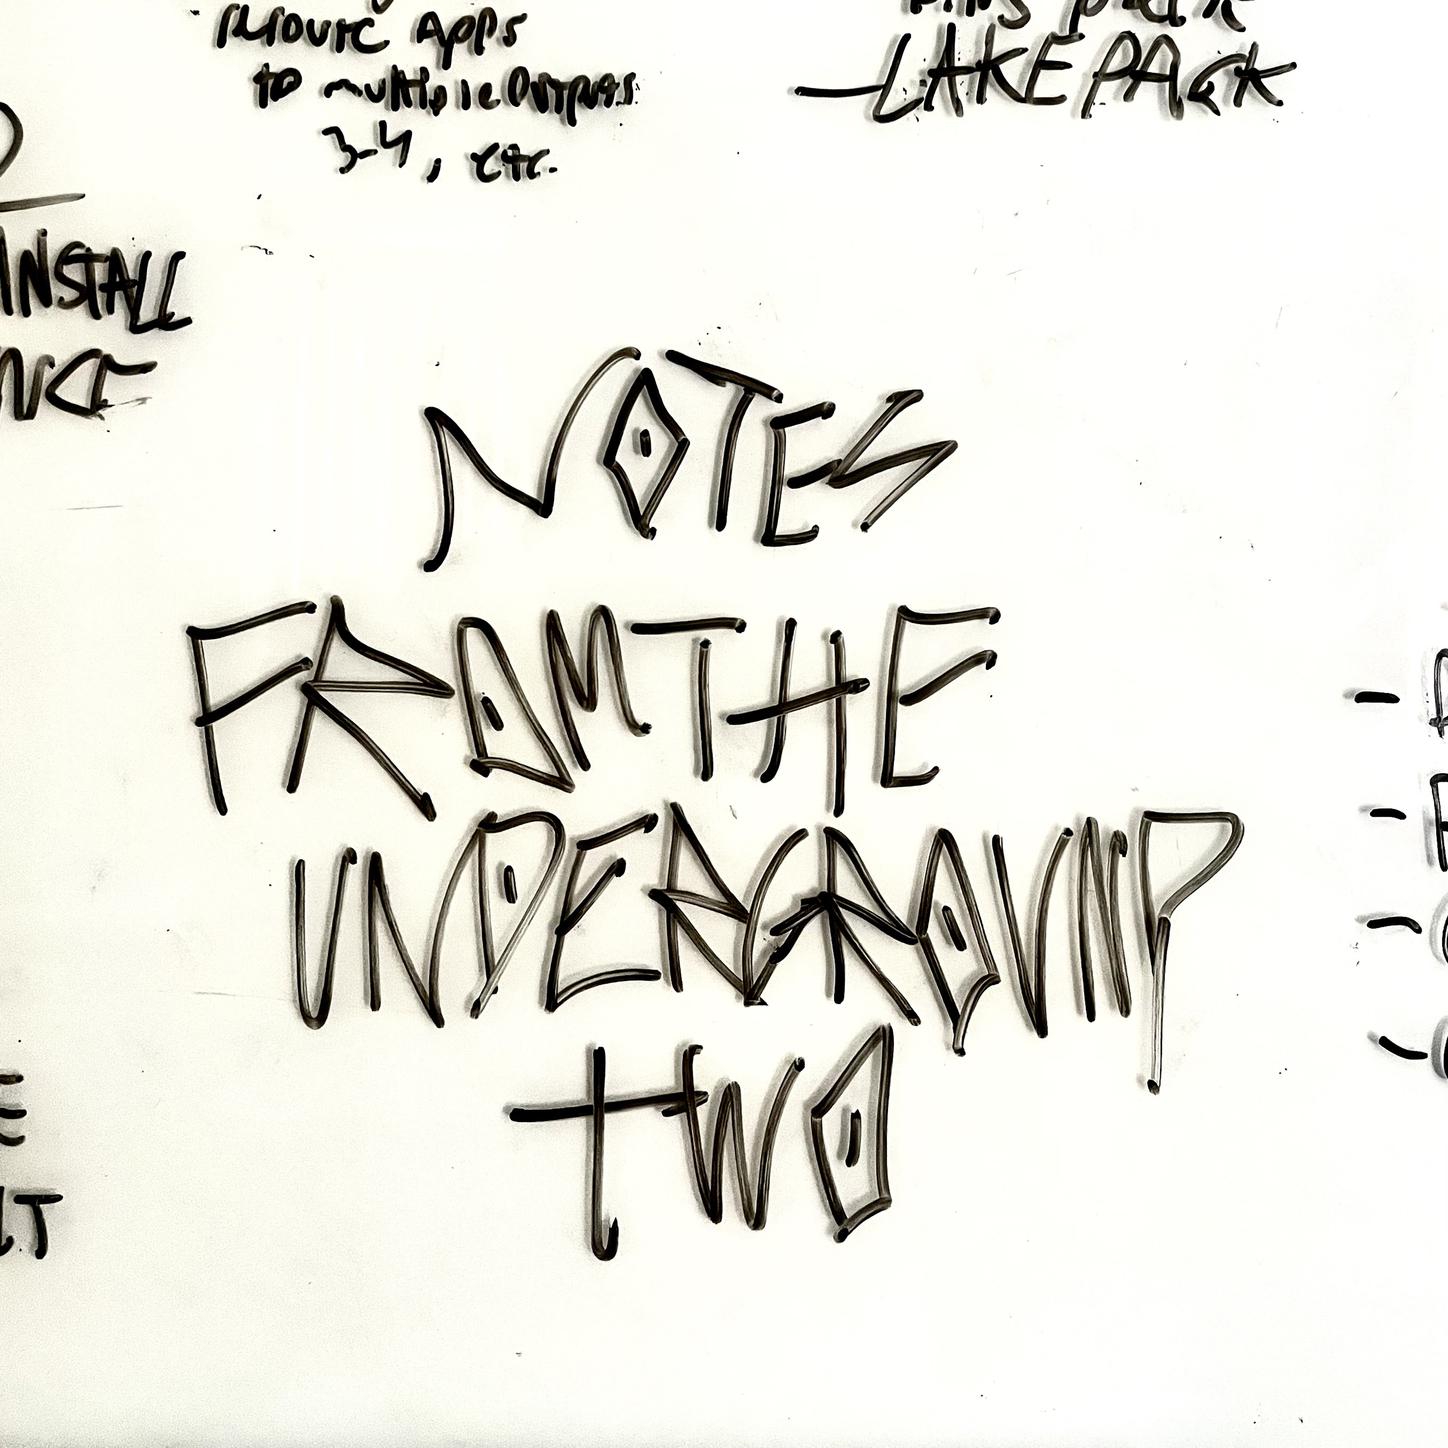 Apps
to multiple Outputs
3-4, etc.
LAKE PACK
INSTALL
NOTES
FROM THE
UNDERGROUND
TWO